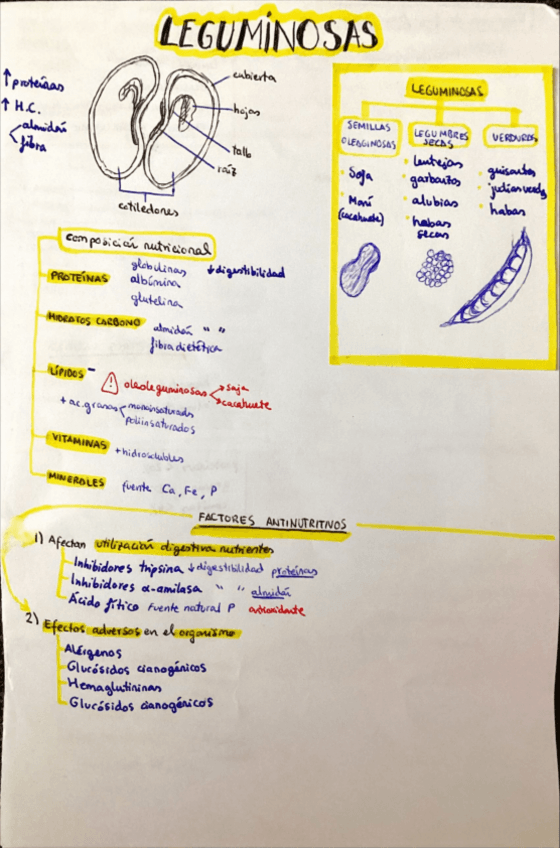 LEGUMINOSAS
↑ proteínas
↑ H.C.
almidón
fibra
cubierta
hojas
tallo
raíz
cotiledones
LEGUMINOSAS
SEMILLAS OLEAGINOSAS
· Soja
· Maní
(cacahuete)
LEGUMBRES SECAS
· lentejas
· garbanzos
· alubias
· habas secas
VERDURAS
· guisantes
· judías verdes
· habas
composición nutricional
PROTEÍNAS
globulinas ↓ digestibilidad
albúmina
glutelina
HIDRATOS CARBONO
almidón " "
fibra dietética
LÍPIDOS -
! oleoleguminosas
soja
cacahuete
+ ac. grasos
monoinsaturados
poliinsaturados
VITAMINAS
+ hidrosolubles
MINERALES
fuente Ca, Fe, P
FACTORES ANTINUTRITIVOS
1) Afectan utilización digestiva nutrientes
Inhibidores tripsina ↓ digestibilidad proteínas
Inhibidores α-amilasa " " almidón
Ácido fítico fuente natural P antioxidante
2) Efectos adversos en el organismo
Alérgenos
Glucósidos cianogénicos
Hemaglutininas
Glucósidos cianogénicos